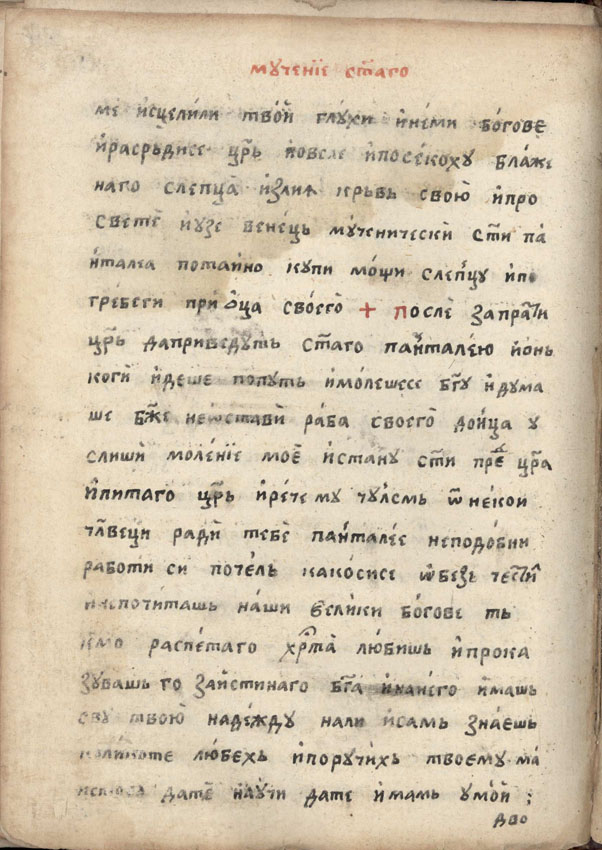 мꙋченїе ст҃аго
ме исцелили твои глꙋхи и неми богове
и расръдисе цр҃ь и повеле и посекохꙋ блаже
наго слепца и излиѧ кръвь свою и про
свете и ꙋзе венець мꙋченически ст҃и па
нталеа потаино кꙋпи мощи слепцꙋ и по
гребеги при ѻца своего + после запрати
цр҃ь да приведꙋть ст҃аго панталею и онь
коги идеше по пꙋть и молешесе бг҃ꙋ и дꙋма
ше бж҃е не ѡстави раба своего до ница ꙋ
слиши моленїе мое и стана ст҃и пред цр҃а
и питаго цр҃ь и рече мꙋ чꙋлемь ѿ некои
чл҃веци ради тебе панталее неподобни
работи си потель како сисе ѡбезь чести
и не почиташь наши велики богове ть
кмо распетаго хрⷭ҇та любишь и прока
зꙋвашь го за истинаго бг҃а и на него имашь
свꙋ твою надеждꙋ нали и самь знаешь
колико те любехь и порꙋчихь твоемꙋ ма
дате наꙋчи да те имамь ꙋ мои ;
дво